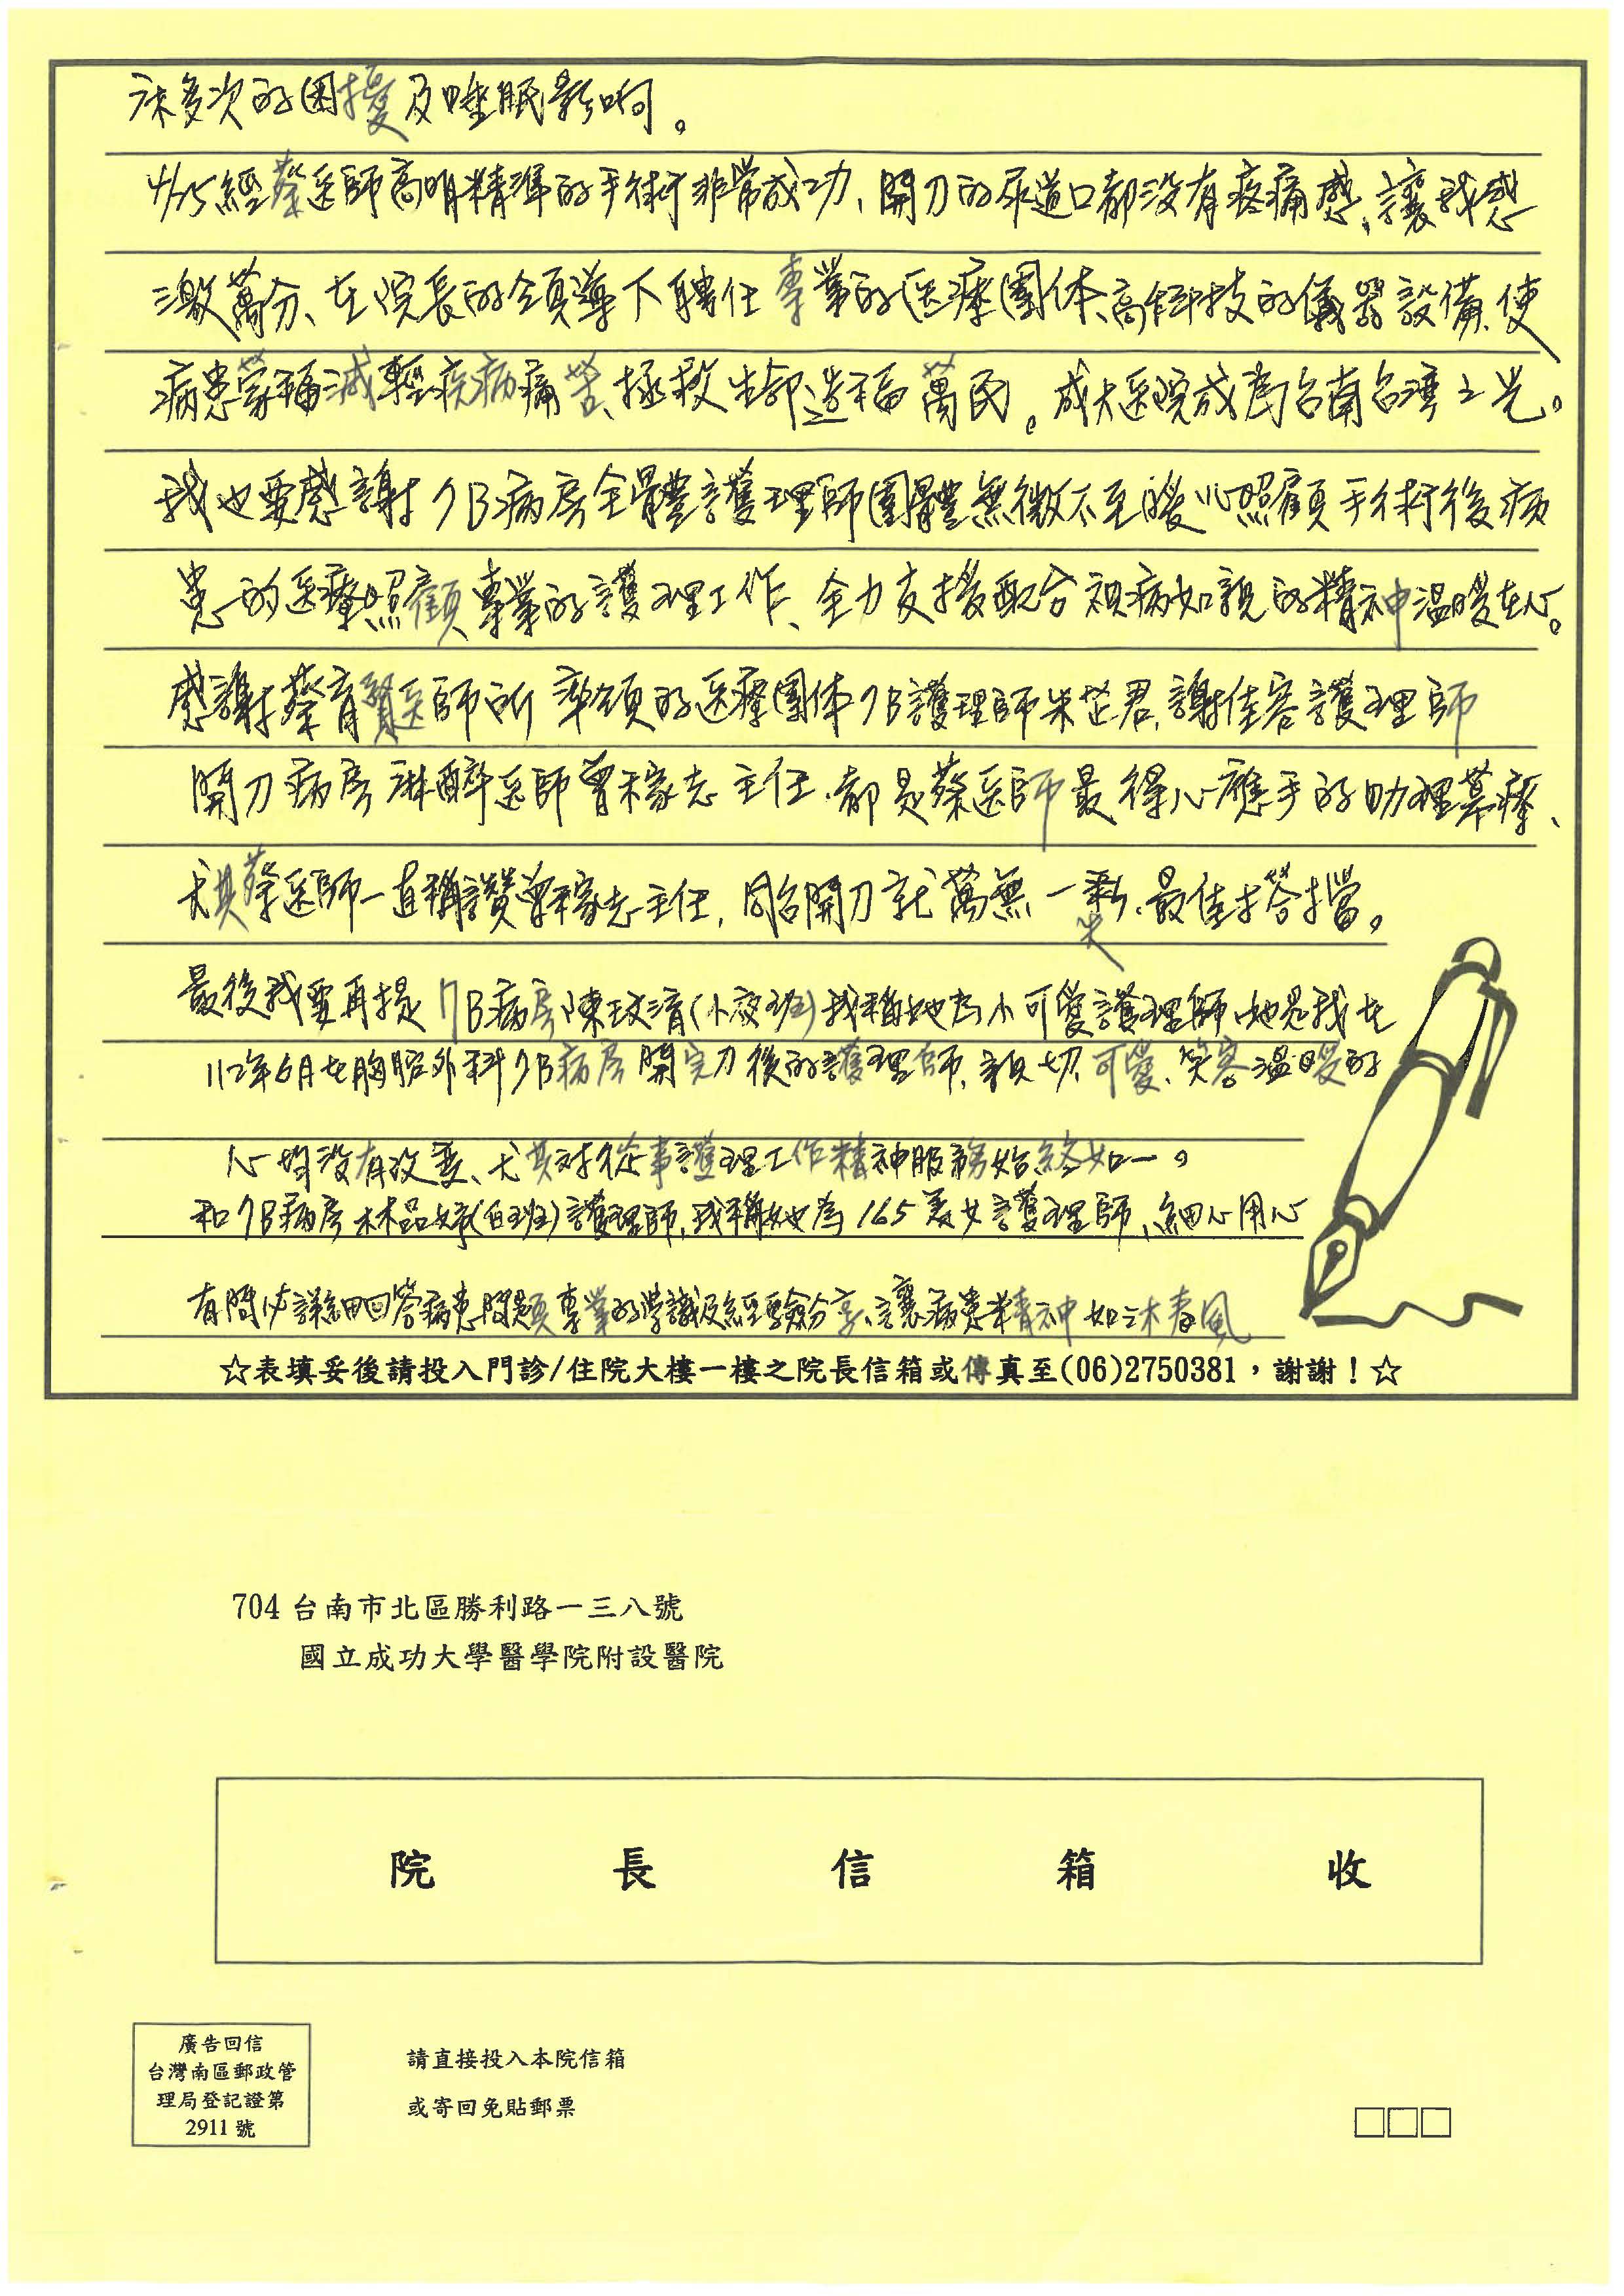 床多次的困擾及睡眠影响。
4/25經蔡医師高明精準的手術非常成功、開刀的尿道口都没有疼痛感,讓我感
激萬分、在院長的領導下聘任專業的医療團体、高科技的儀器設備、使
病患蒙福減輕疾病痛苦、拯救生命造福萬民。成大医院成為台南台灣之光。
我也要感謝7B病房全體護理師團體無微不至暖心照顧手術後病
患的医療照顧、專業的護理工作、全力支援配合視病如親的精神温暖在心。
感謝蔡育賢医師所率領的医療團体7B護理師朱芷君,謝佳容護理師
開刀病房麻醉医師曾稼志主任、都是蔡医師最得心應手的助理幕療、
尤其蔡医師一直稱讚曾稼志主任,同台開刀就萬無一失、最佳搭擋。
最後我要再提7B病房陳玟淯(小夜班)我稱她為小可愛護理師、她是我在
112年6月在胸腔外科7B病房開完刀後的護理師、親切、可愛、笑容温暖的
心均没有改变、尤其對從事護理工作精神服務始終如一。
和7B病房林品妤(白班)護理師,我稱她為165美女護理師、細心用心
有問必詳細回答病患問題專業的學識及經驗分享、讓病患業精神如沐春風
☆表填妥後請投入門診/住院大樓一樓之院長信箱或傳真至(06)2750381,謝謝!☆
704 台南市北區勝利路一三八號
國立成功大學醫學院附設醫院
院 長 信 箱 收
廣告回信
台灣南區郵政管
理局登記證第
2911 號
請直接投入本院信箱
或寄回免貼郵票